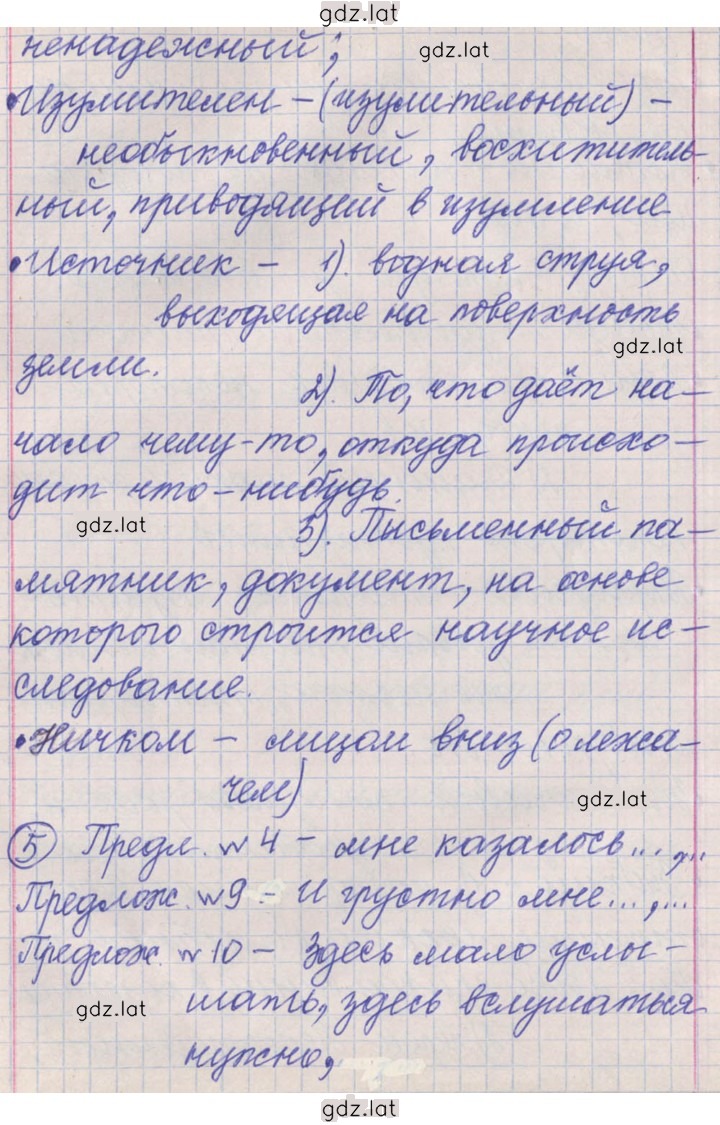 gdz.lat
ненадежный;
gdz.lat
•Изумителен – (изумительный) –
необыкновенный, восхититель-
ный, приводящий в изумление
•Источник – 1). водная струя,
выходящая на поверхность
gdz.lat
земли.
2). То, что даёт на-
чало чему-то, откуда происхо-
дит что-нибудь.
gdz.lat
3). Письменный па-
мятник, документ, на основе
которого строится научное ис-
следование.
•Ничком – лицом вниз (о лежа-
чем)
gdz.lat
5 Предл. №4 – мне казалось..., ...
Предлож. №9 – И грустно мне..., ...
Предлож. №10 – Здесь мало услы-
gdz.lat
шать, здесь вслушаться
нужно,
gdz.lat